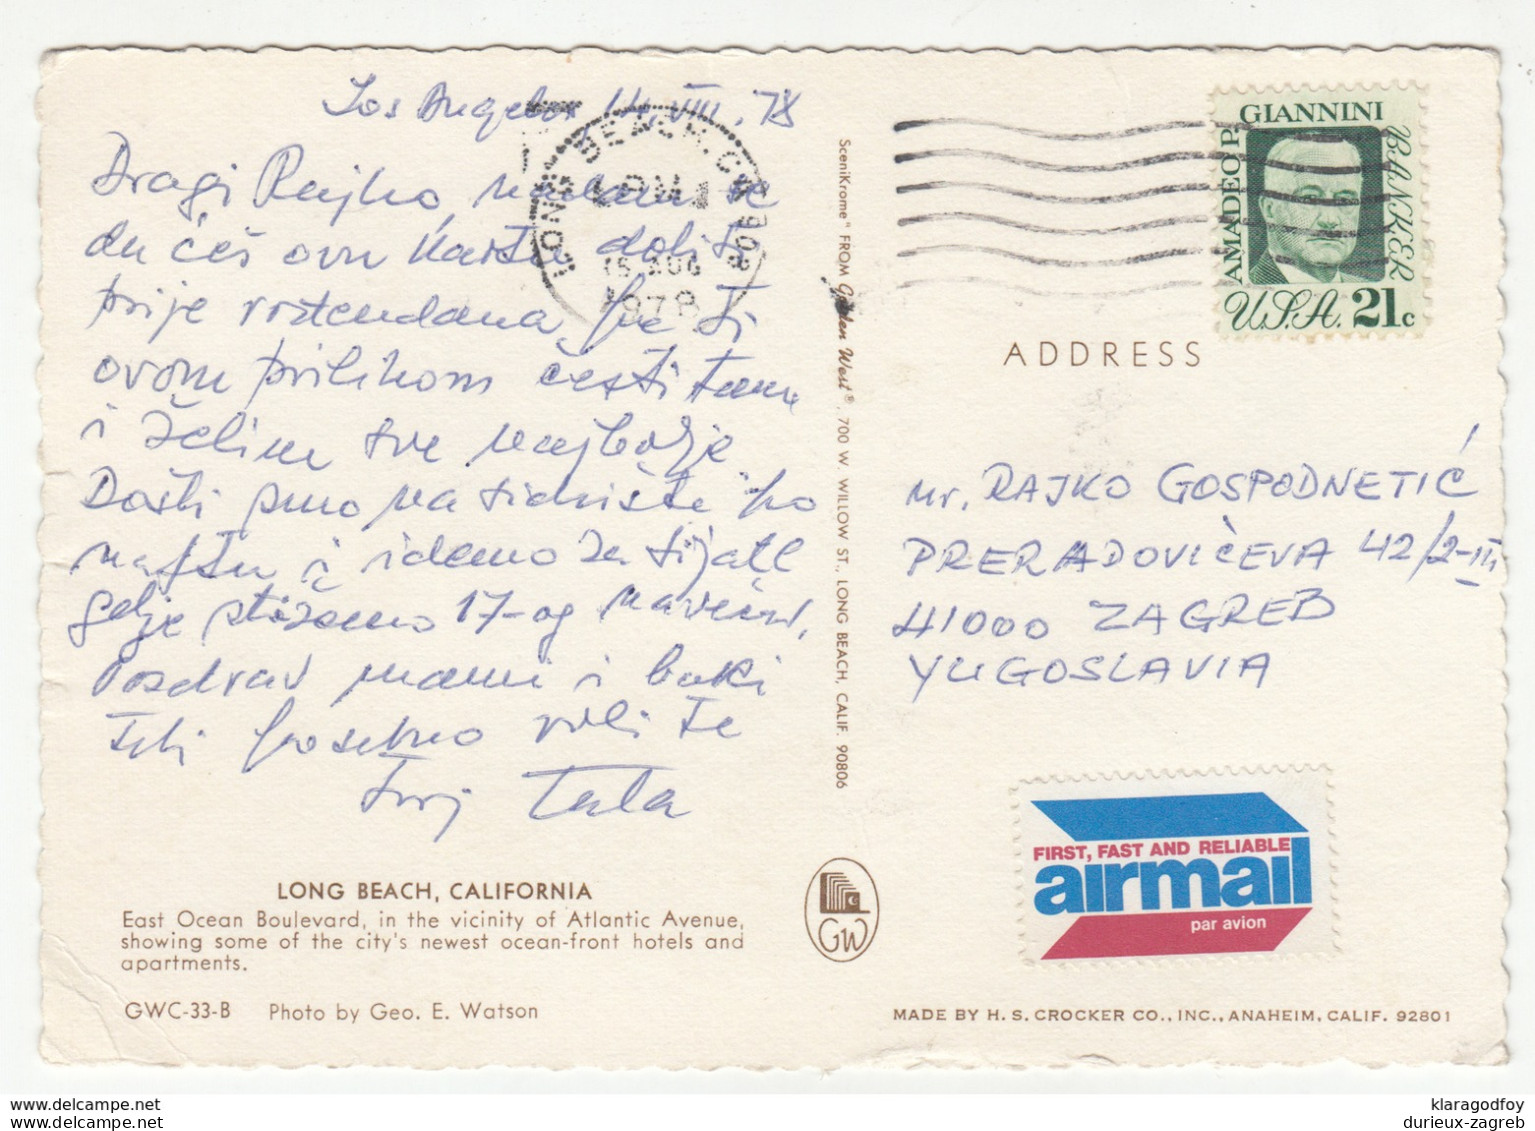 Los Angeles 14. VIII. 78
Dragi Rajko, nadam se
da ćeš ovu kartu dobiti
prije rođendana pa ti
ovom prilikom čestitam
i želim sve najbolje
Došli smo na sidrište po
naftu i idemo za
stižemo 17-og navečer.
Pozdrav mami i baki
Tebi posebno voli te
tvoj Tata
LONG BEACH, CALIFORNIA
East Ocean Boulevard, in the vicinity of Atlantic Avenue,
showing some of the city's newest ocean-front hotels and
apartments.
GWC-33-B Photo by Geo. E. Watson
LONG BEACH, CA 908
PM
15 AUG
1978
SceniKrome® FROM Golden West®, 700 W. WILLOW ST., LONG BEACH, CALIF. 90806
GW
AMADEO P. GIANNINI
BANKER
U.S.A. 21c
ADDRESS
Mr. RAJKO GOSPODNETIĆ
PRERADOVIČEVA 42/2-III
41000 ZAGREB
YUGOSLAVIA
FIRST, FAST AND RELIABLE
airmail
par avion
MADE BY H. S. CROCKER CO., INC., ANAHEIM, CALIF. 92801
klaragodfoy
durieux-zagreb
durieux-zagreb
durieux-zagreb